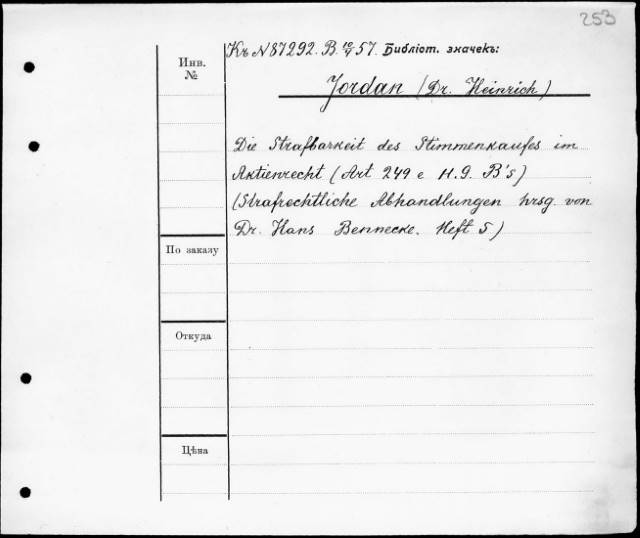 253
Къ N 87292. В. 10/V 57. Библіот. значекъ:
Инв.
№
Jordan (Dr. Heinrich)
Die Strafbarkeit des Stimmenkaufes im
Aktienrecht (Art 249 e H. G. B's)
(Strafrechtliche Abhandlungen hrsg. von
Dr. Hans Bennecke. Heft 5)
По заказу
Откуда
Цѣна